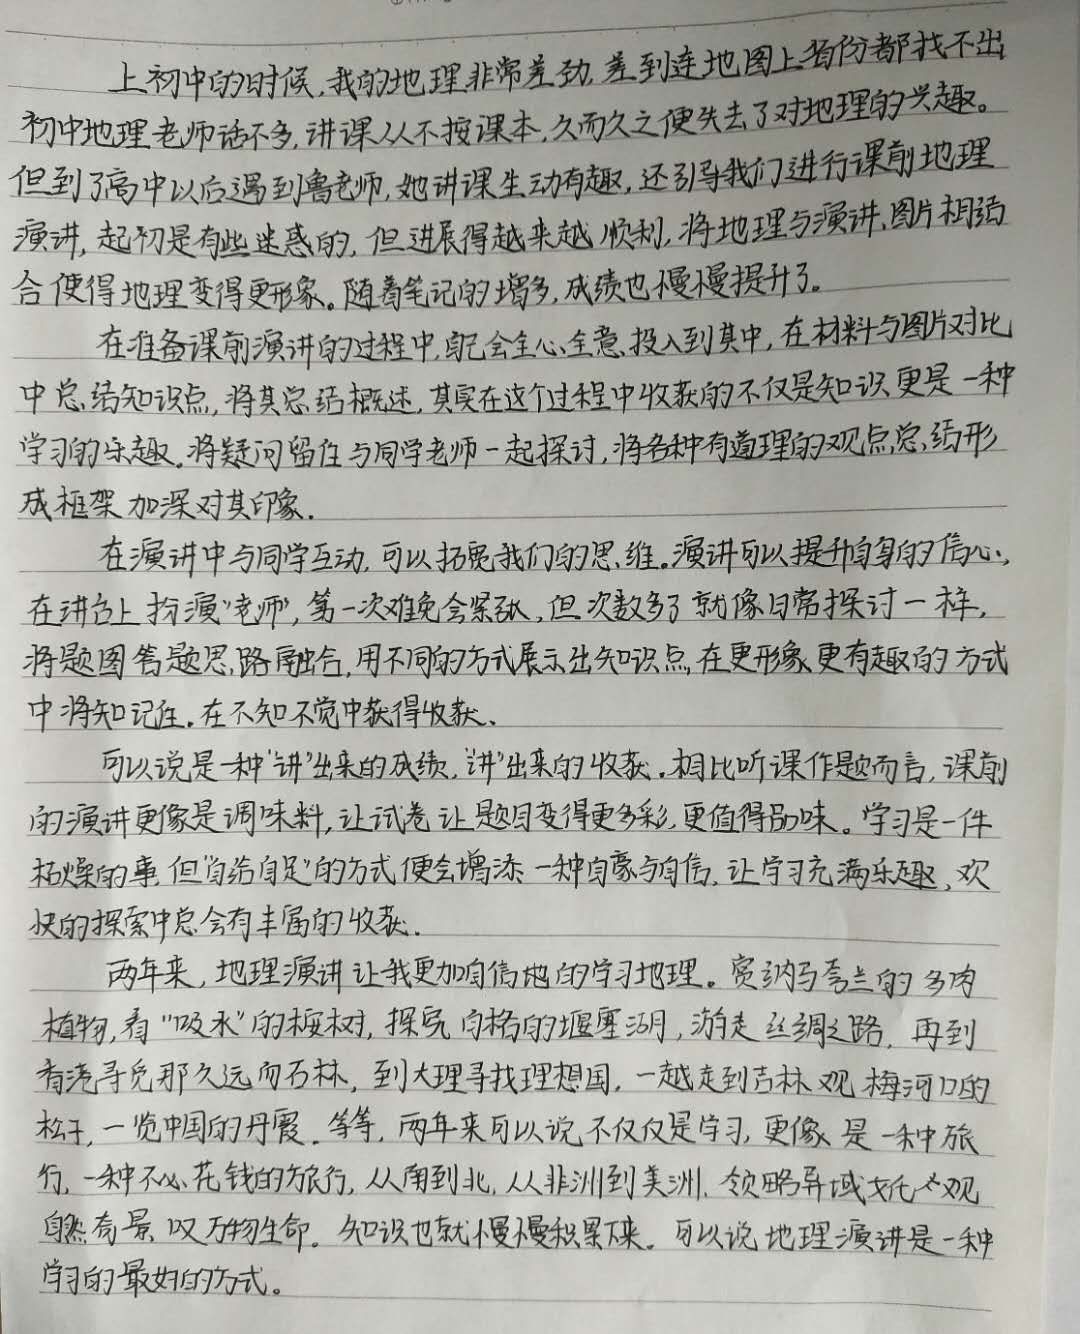 上初中的时候,我的地理非常差劲,差到连地图上省份都找不出,
初中地理老师话不多,讲课从不按课本,久而久之便失去了对地理的兴趣。
但到了高中以后遇到鲁老师,她讲课生动有趣,还引导我们进行课前地理
演讲,起初是有些迷惑的,但进展得越来越顺利,将地理与演讲、图片相结
合使得地理变得更形象。随着笔记的增多,成绩也慢慢提升了。
在准备课前演讲的过程中,自己会全心全意投入到其中,在材料与图片对比
中总结知识点,将其总结概述,其实在这个过程中收获的不仅是知识更是一种
学习的乐趣。将疑问留住与同学老师一起探讨,将各种有道理的观点总结形
成框架加深对其印象.
在演讲中与同学互动,可以拓宽我们的思维。演讲可以提升自身的信心,
在讲台上扮演"老师",第一次难免会紧张,但次数多了就像日常探讨一样,
将题图答题思路融合,用不同的方式展示出知识点,在更形象更有趣的方式
中将知记住.在不知不觉中获得收获、
可以说是一种"讲"出来的成绩,"讲"出来的收获.相比听课作题而言,课前
的演讲更像是调味料,让试卷让题目变得更多彩,更值得品味。学习是一件
枯燥的事,但"自给自足"的方式便会增添一种自豪与自信,让学习充满乐趣、欢
快的探索中总会有丰富的收获.
两年来,地理演讲让我更加自信地的学习地理。赏纳马夸兰的多肉
植物,看"吸水"的桉树,探究白格的堰塞湖,游走丝绸之路,再到
香港寻觅那久远的石林,到大理寻找理想国,一越走到吉林观梅河口的
松子,一览中国的丹霞.等等,两年来可以说不仅仅是学习,更像是一种旅
行,一种不必花钱的旅行,从南到北,从非洲到美洲.领略异域文化观
自然奇景,叹万物生命。知识也就慢慢积累下来.可以说地理演讲是一种
学习的最好的方式。